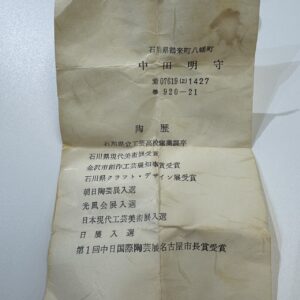 石川県鶴来町八幡町
中田明守
☎07619(2)1427
〒920-21
陶歴
石川県立工芸高校窯業講座
石川県現代美術展受賞
金沢市創作工芸展知事賞受賞
石川県クラフト・デザイン展受賞
朝日陶芸展入選
光風会展入選
日本現代工芸美術展入選
日展入選
第1回中日国際陶芸展名古屋市長賞受賞